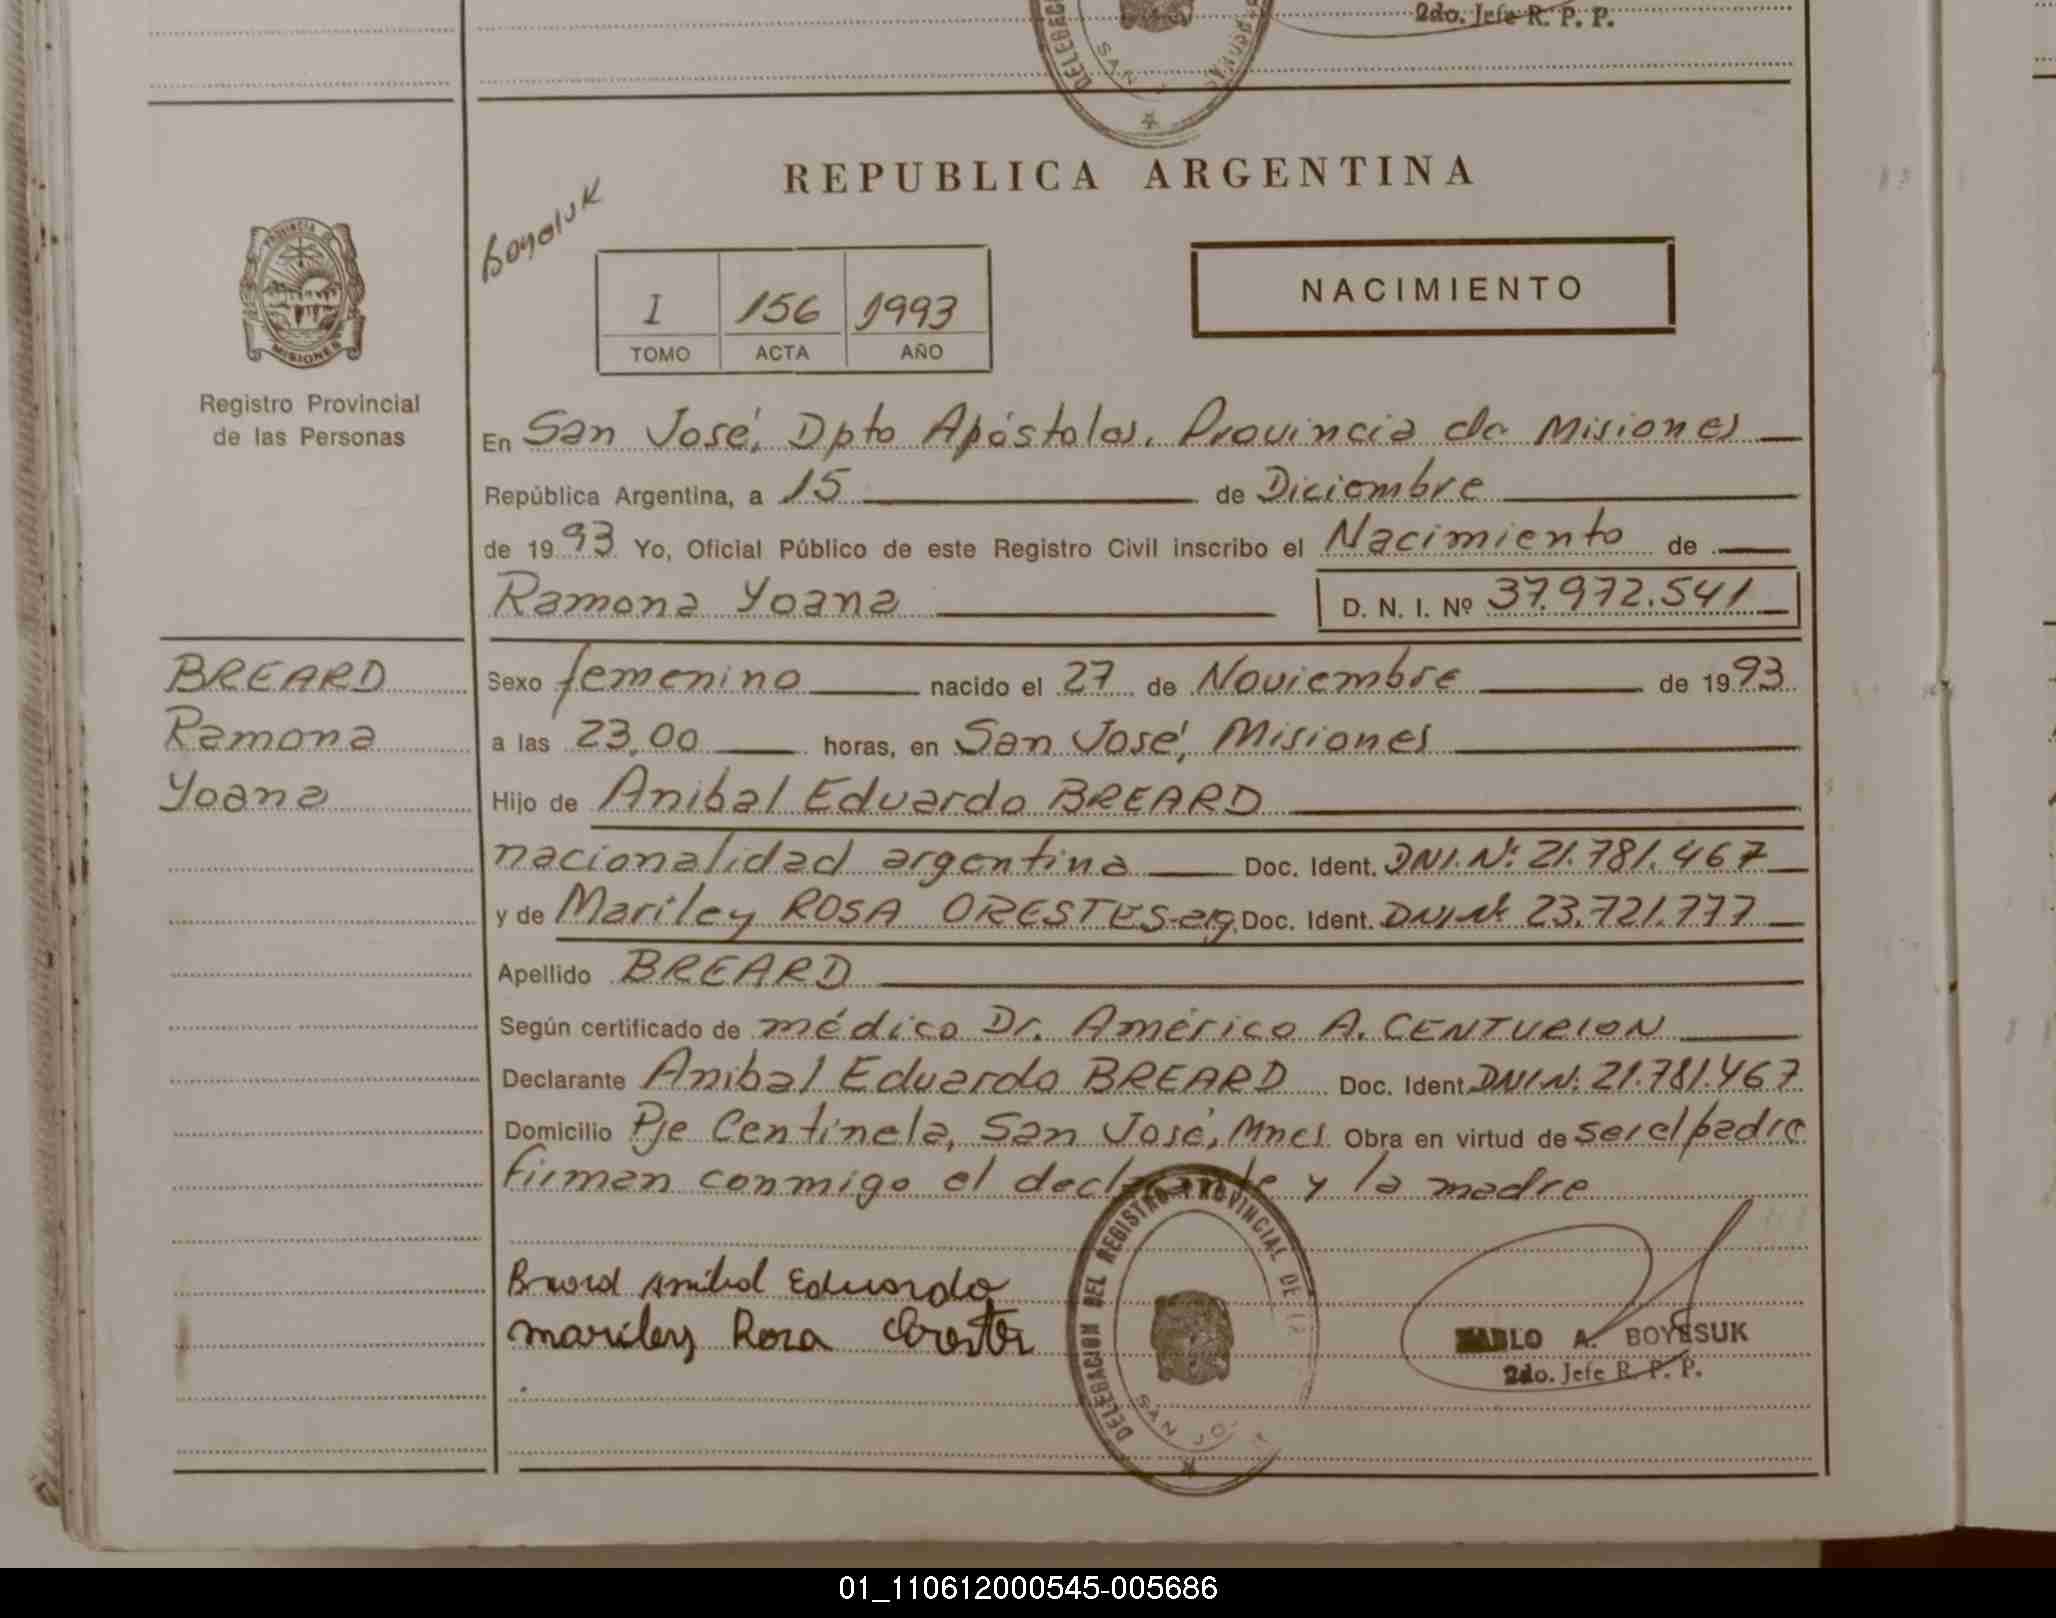 2do. Jefe R. P. P.
REPUBLICA ARGENTINA
PROVINCIA DE
MISIONES
Registro Provincial
de las Personas
I 156 1993
TOMO ACTA AÑO
NACIMIENTO
En San José, Dpto Apóstoles, Provincia de Misiones
República Argentina, a 15 de Diciembre
de 1993 Yo, Oficial Público de este Registro Civil inscribo el Nacimiento de
Ramona Yoana D. N. I. Nº 37.972.541
BREARD
Ramona
Yoana
Sexo femenino nacido el 27 de Noviembre de 1993
a las 23,00 horas, en San José, Misiones
Hijo de Anibal Eduardo BREARD
nacionalidad argentina Doc. Ident. DNI.Nº 21.781.467
y de Mariley ROSA ORESTES-arg. Doc. Ident. DNI Nº 23.721.777
Apellido BREARD
Según certificado de médico Dr. Américo A. CENTURION
Declarante Anibal Eduardo BREARD Doc. Ident. DNI N. 21.781.467
Domicilio Pje Centinela, San José, Mnes Obra en virtud de ser el padre
firman conmigo el declarante y la madre
Breard Anibal Eduardo
mariley Rosa Orestes
DELEGACION DEL REGISTRO PROVINCIAL DE
SAN JO
PABLO A. BOYESUK
2do. Jefe R. P. P.
01_110612000545-005686